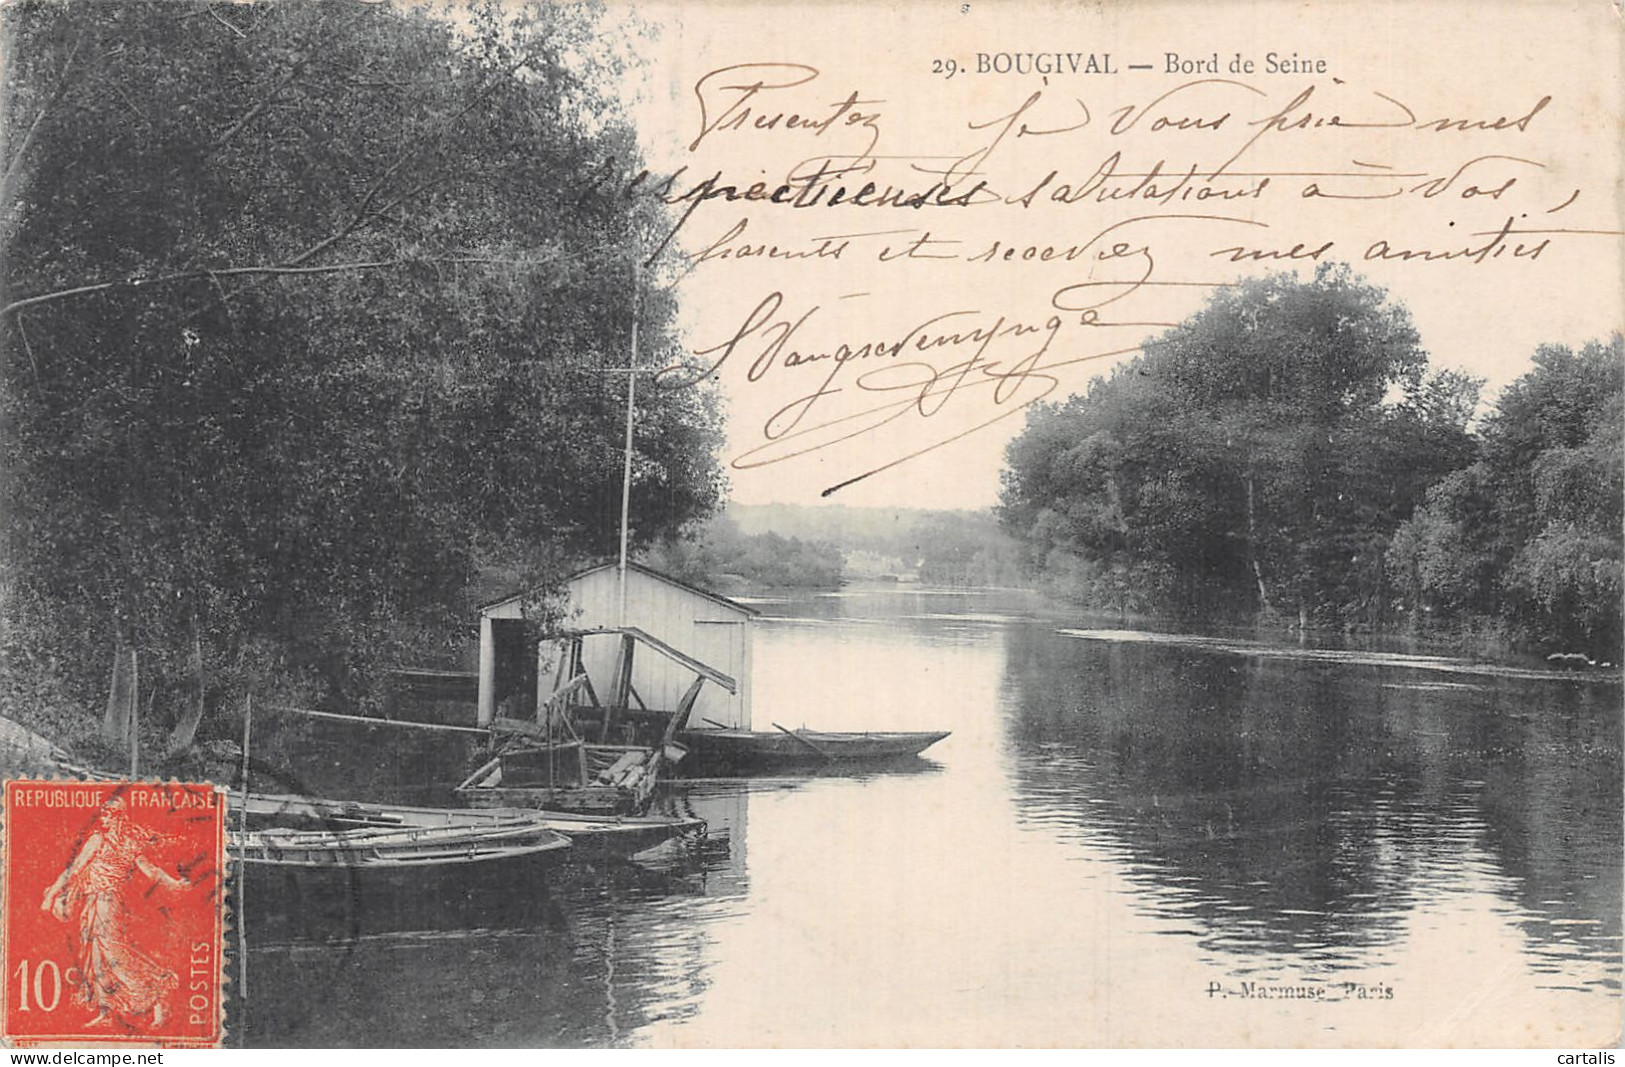 29. BOUGIVAL — Bord de Seine
Presentez je vous prie mes
respectueuses salutations à vos
parents et recevez mes amitiés
P. Marmuse Paris
REPUBLIQUE FRANÇAISE
10c
POSTES
cartalis